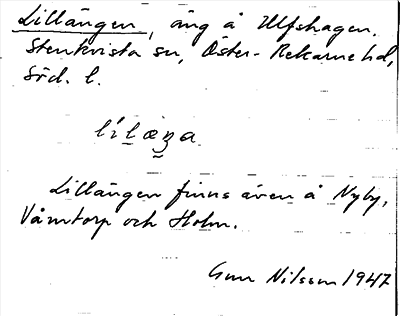 Lillängen, äng å Ulfshagen.
Stenkvista sn, Öster-Rekarne hd,
Söd. l.
Lillängen finns även å Nyby,
Våmtorp och Holm.
Gun Nilsson 1947